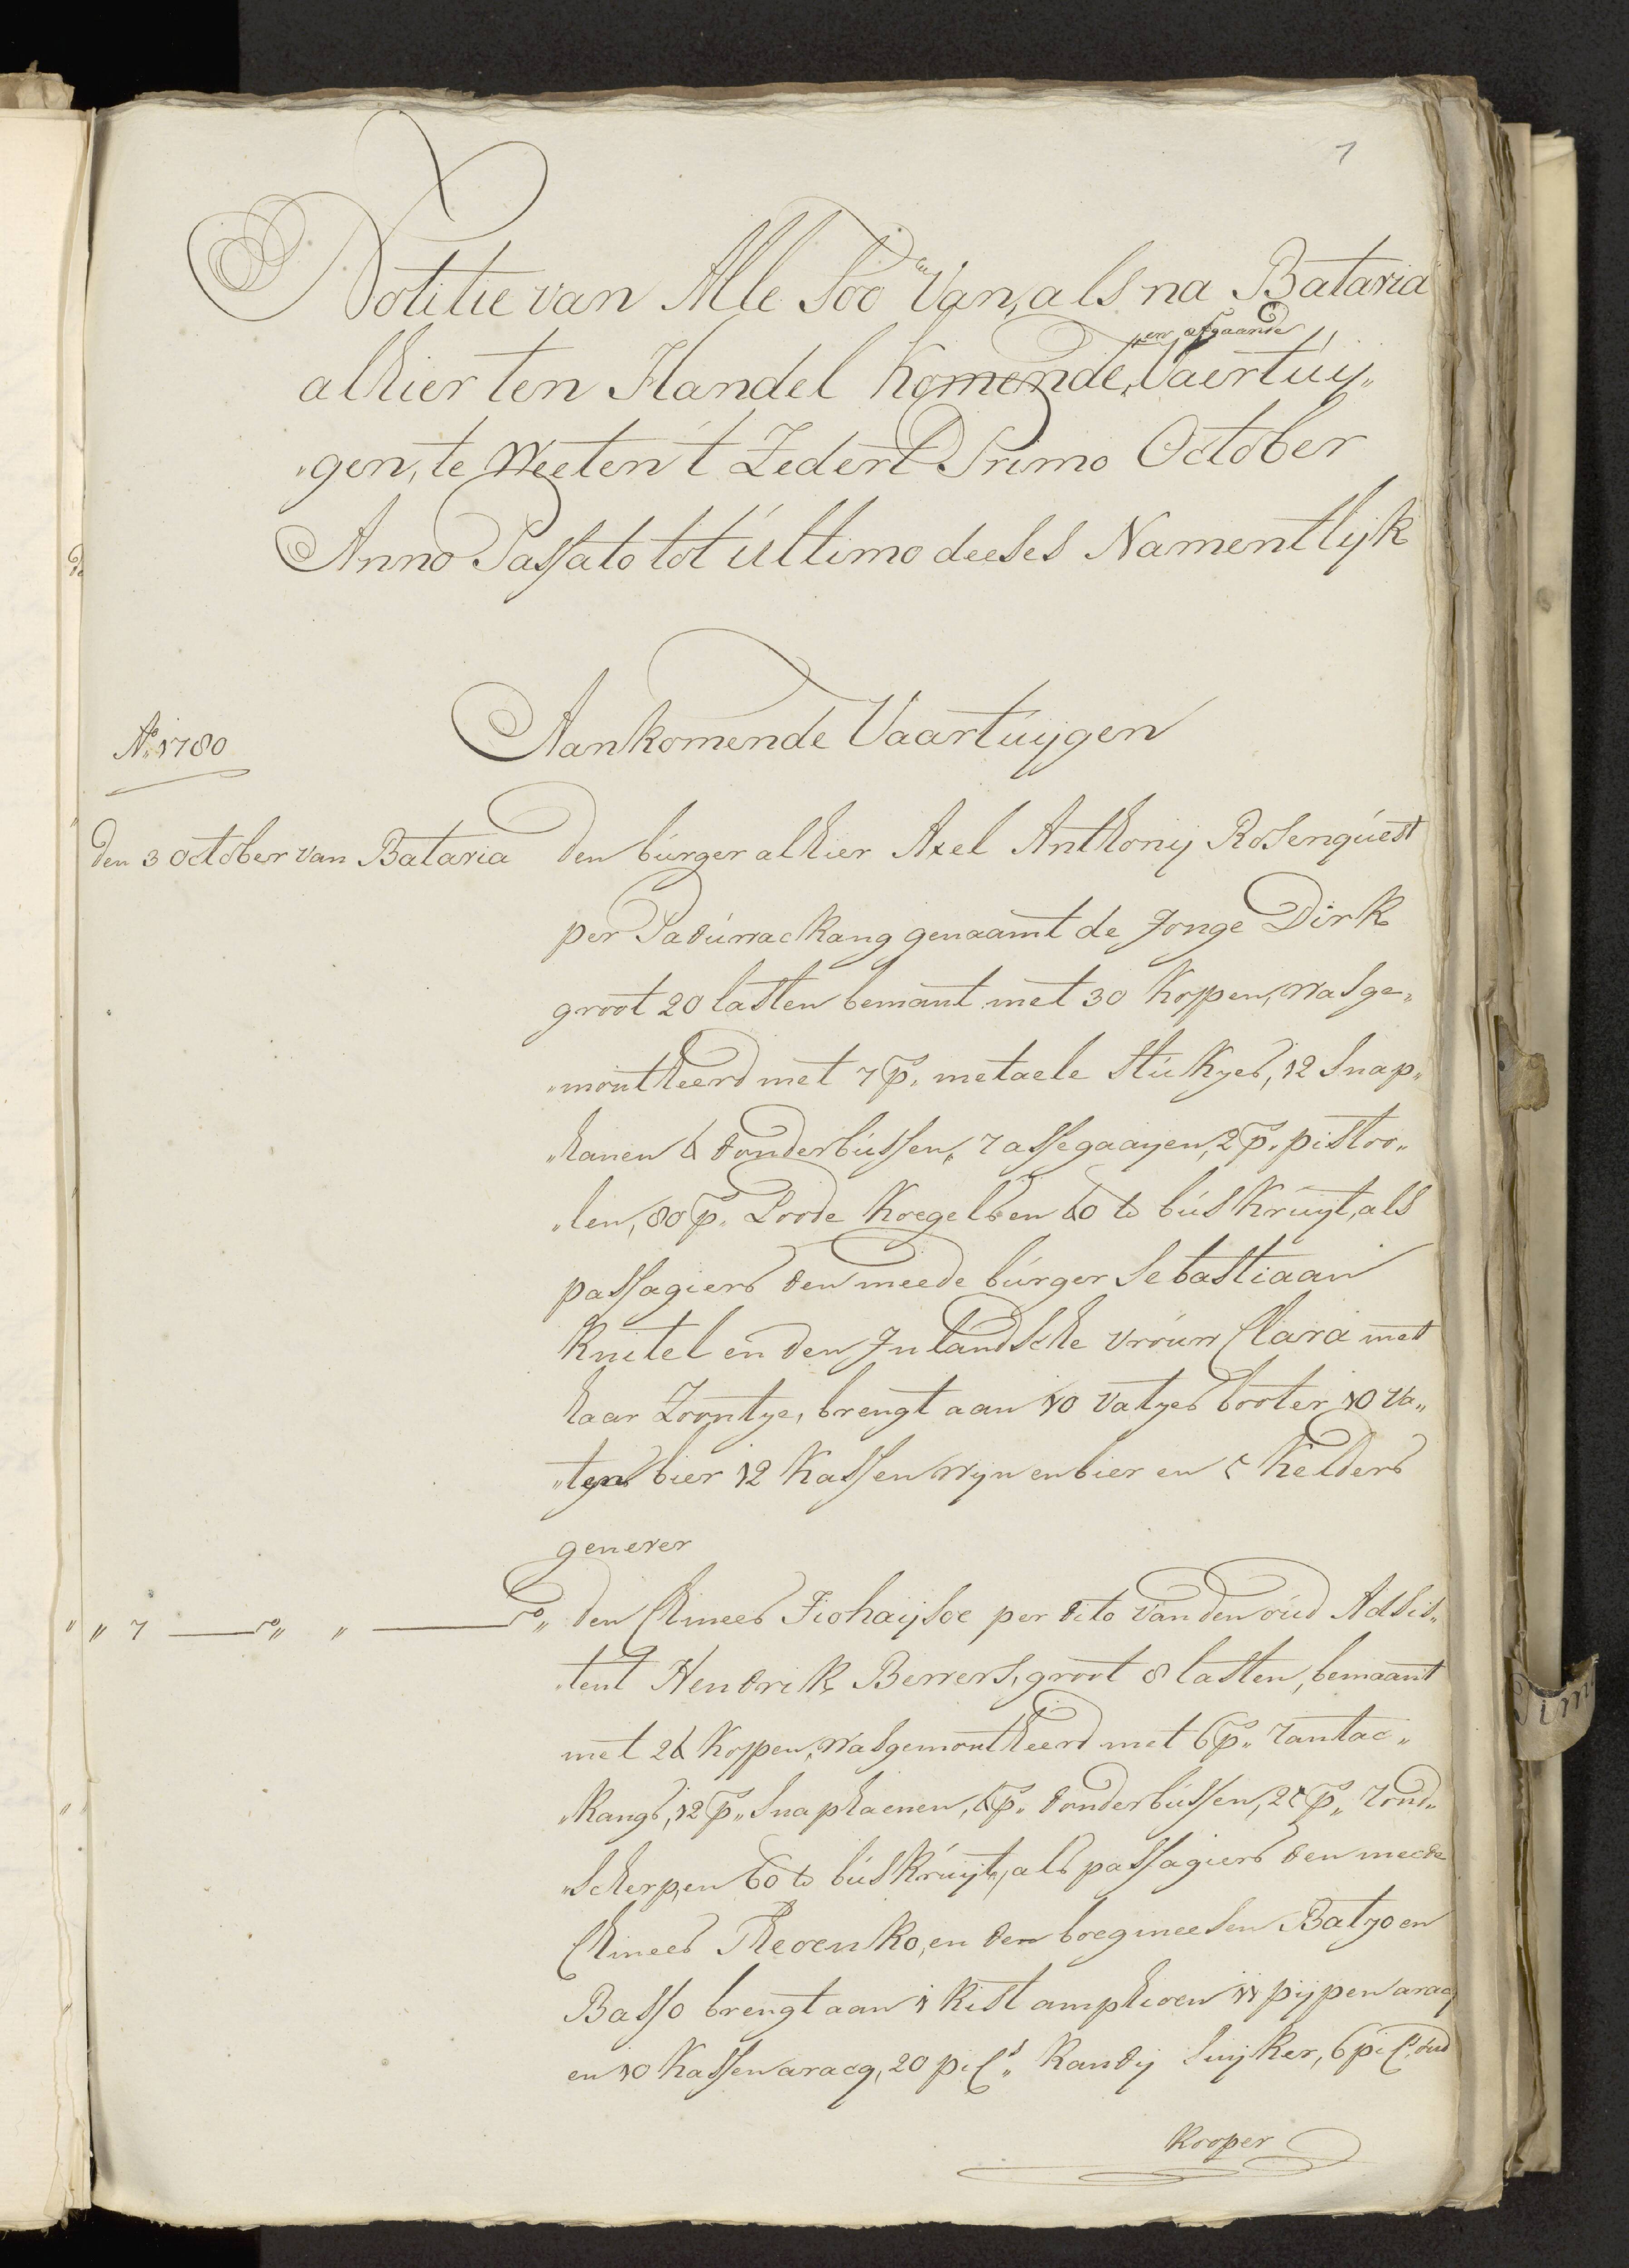 1
Notitie van Alle Soo Van, als na Batavia
en afgaande
alhier ten Handel komende, Vaertuij„
„gen, te Weeten 't Zedert Primo October
Anno Passato tot ultimo deeses Namentlijk
Aankomende Vaartuijgen
Ao. 1780
den 3 October van Batavia den burger alhier Axel Anthonij Rosenquest
per Paduwackang genaamt de Jonge Dirk
groot 20 lasten bemant met 30 koppen, was ge„
„montheerd met 7 p„s metaele stukjes, 12 snap„
„hanen 4 donderbussen, 7 assegaayen, 2 p„s pistoo„
„len, 80 p„s Loode koegels en 40 lb buskruyt, als
passagiers den meede burger Sebastiaan
Knitel en den Inlandsche vrouw Clara met
haar Zoontje, brengt aan 10 vatjes booter 10 va„
„tjes bier 12 kassen wijn en bier en 5 kelders
genever
„ „ 7 ___ do„ „ ___ do„ den Chinees Jiohaijsoe per dito van den oud Adsis„
„tent Hendrik Bewers, groot 8 lasten, bemaant
met 24 koppen, was gemontheerd met 6 p„s rantac„
„kangs, 12 p„s snaphaenen, 4 p„s donderbussen, 25 p„s rond„
„scherp, en 60 lb buskruijt, als passagiers den meede
Chinees Theoenko, en den boegineesen Batjo en
Basso brengt aan 1 kist amphioen 11 pijpen aracq
en 10 kassen aracq, 20 pic„s kandij suijker, 6 pic„s oud
kooper